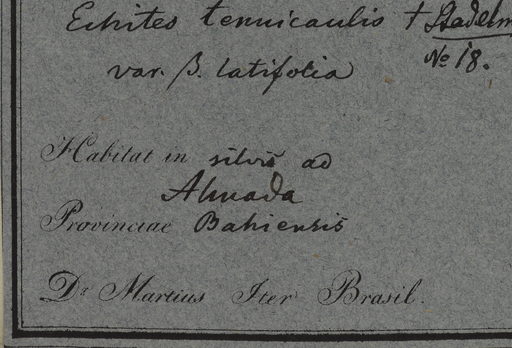 Echites tenuicaulis † Stadelm
No 18.
var. β. latifolia
Habitat in silvis ad
Almada
Provinciae Bahiensis
Dr Martius Iter Brasil.